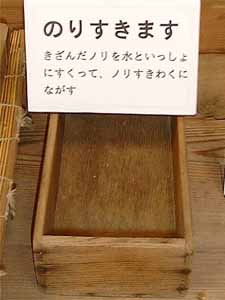 のりすきます
きざんだノリを水といっしょ
にすくって、ノリすきわくに
ながす